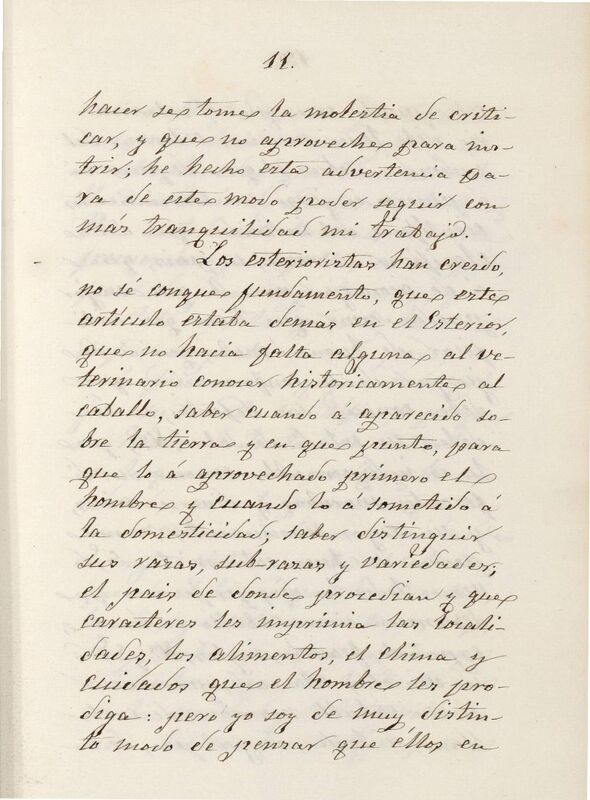 11.
hacer se tome la molestia de criti-
car, y que no aproveche para ins-
trir; he hecho esta advertencia pa-
ra de este modo poder seguir con
más tranquilidad mi trabajo.
Los esterioristas han creido,
no sé conque fundamento, que este
artículo estaba demás en el Esterior,
que no hacia falta alguna al ve-
terinario conocer historicamente al
caballo, saber cuando á aparecido so-
bre la tierra y en que punto, para
que lo á aprovechado primero el
hombre y cuando lo á sometido á
la domesticidad; saber distinguir
sus razas, sub-razas y variedades;
el pais de donde procedian y que
caractéres les imprimia las locali-
dades, los alimentos, el clima y
cuidados que el hombre les pro-
diga: pero yo soy de muy distin-
to modo de pensar que éllos en